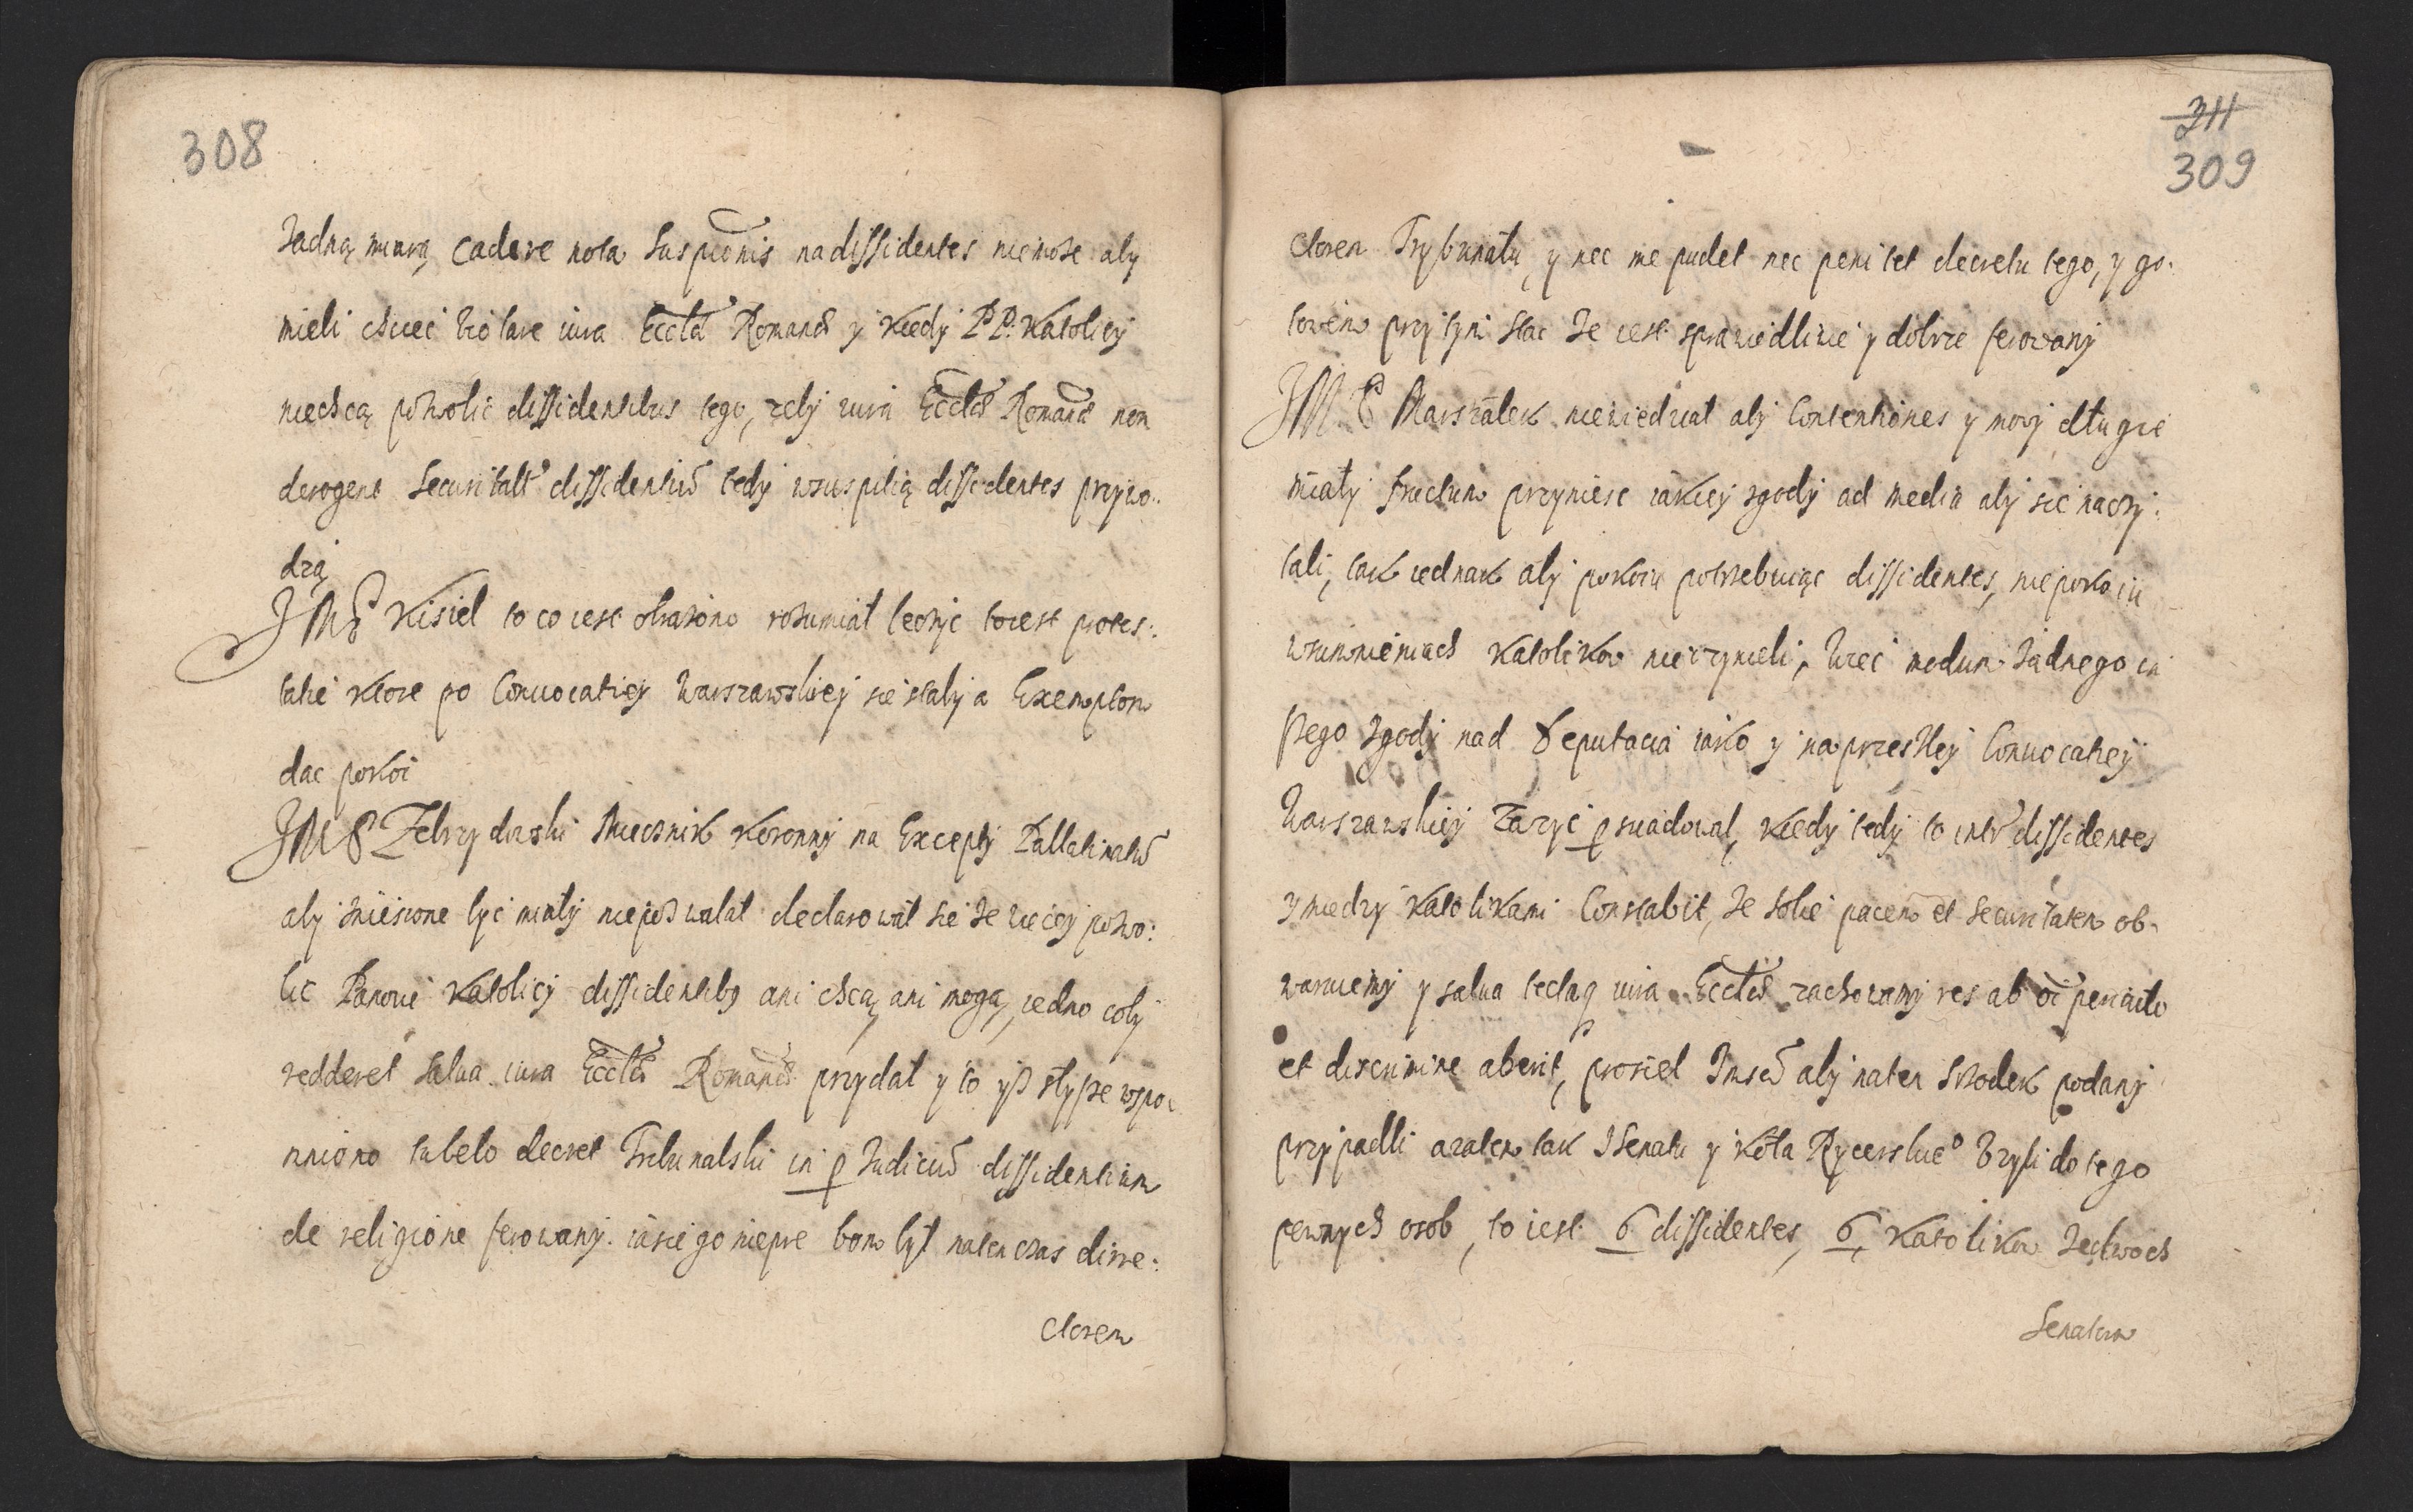 308
żadną miarą cadere nota suspicionis na dissidentes niemoże aby
mieli chcieć violare iura Eccłae Romanae y kiedy PP. Katolicy
niechcą pozwolić dissidentibus tego, zeby iura Eccłae Romanae non
derogent Securitati dissidentium tedy w suspitią dissidentes przywo:
dzą
JMP Kisiel to co iest obrażono rozumiał leczyć to iest protes:
tatie ktore po Convocatiey Warszawskiey się stały a Exemptom
dac pokoi
JMP Zebrzydowski Miecznik Koronny na Excepty Pallatinatu
aby zniesione być miały niepozwalał declarował się że więcey pozwo:
lic Panowie Katolicy dissidentibus ani chcą ani mogą, iedno coby
redderet salua iura Eccłae Romanae przydał y to yż słyszę wspo
mniono tu beło decret Trybunalski in p Judiciu dissidentium
de religione ferowany. ia się go nieprę bom był na ten czas dire:
ctorem
311
309
ctorem Trybunału, y nec me pudet nec penitet decretu tego, y go:
towem przy tym stac że iest sprawiedliwie y dobrze ferowany
JMP Marszałek niewiedział aby Contentiones y mowy długie
miały fructum przyniesc iakiey zgody ad media aby się naczy:
tali, tak iednak aby pokoiu potrzebuiąc dissidentes, niepokoiu
w sumnieniach Katolikow nieczynieli, wiec modum żadnego in
szego zgody nad Deputacią iako y na przeszłey Convocatiey
Warszawskiey zazyć psuadował, kiedy tedy to inter dissidentes
y miedzy Katolikami Constabit, że sobie pacem et securitatem ob
waruiemy y salua tectaq iura Eccłae zachowamy res ab oi periculo
et discrimine aberit, prosieł Imscu aby na ten srzodek podany
przypadli azatem tak z Senatu y koła Rycerskieo Vzyli do tego
pewnych osob, to iest 6 dissidentes, 6, Katolikow ze dwoch
Senatorow